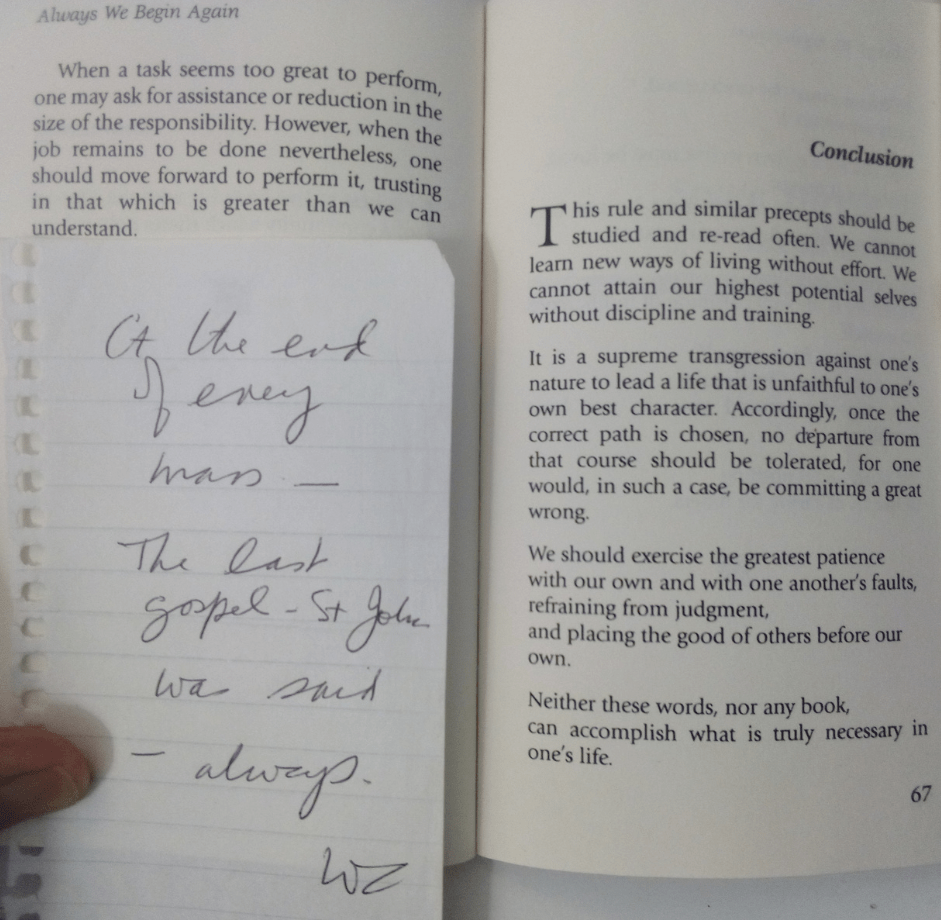 Always We Begin Again
When a task seems too great to perform,
one may ask for assistance or reduction in the
size of the responsibility. However, when the
job remains to be done nevertheless, one
should move forward to perform it, trusting
in that which is greater than we can
understand.
At the end
of every
mass —
The last
gospel - St John
was said
— always.
WZ
Conclusion
This rule and similar precepts should be
studied and re-read often. We cannot
learn new ways of living without effort. We
cannot attain our highest potential selves
without discipline and training.
It is a supreme transgression against one's
nature to lead a life that is unfaithful to one's
own best character. Accordingly, once the
correct path is chosen, no departure from
that course should be tolerated, for one
would, in such a case, be committing a great
wrong.
We should exercise the greatest patience
with our own and with one another's faults,
refraining from judgment,
and placing the good of others before our
own.
Neither these words, nor any book,
can accomplish what is truly necessary in
one's life.
67